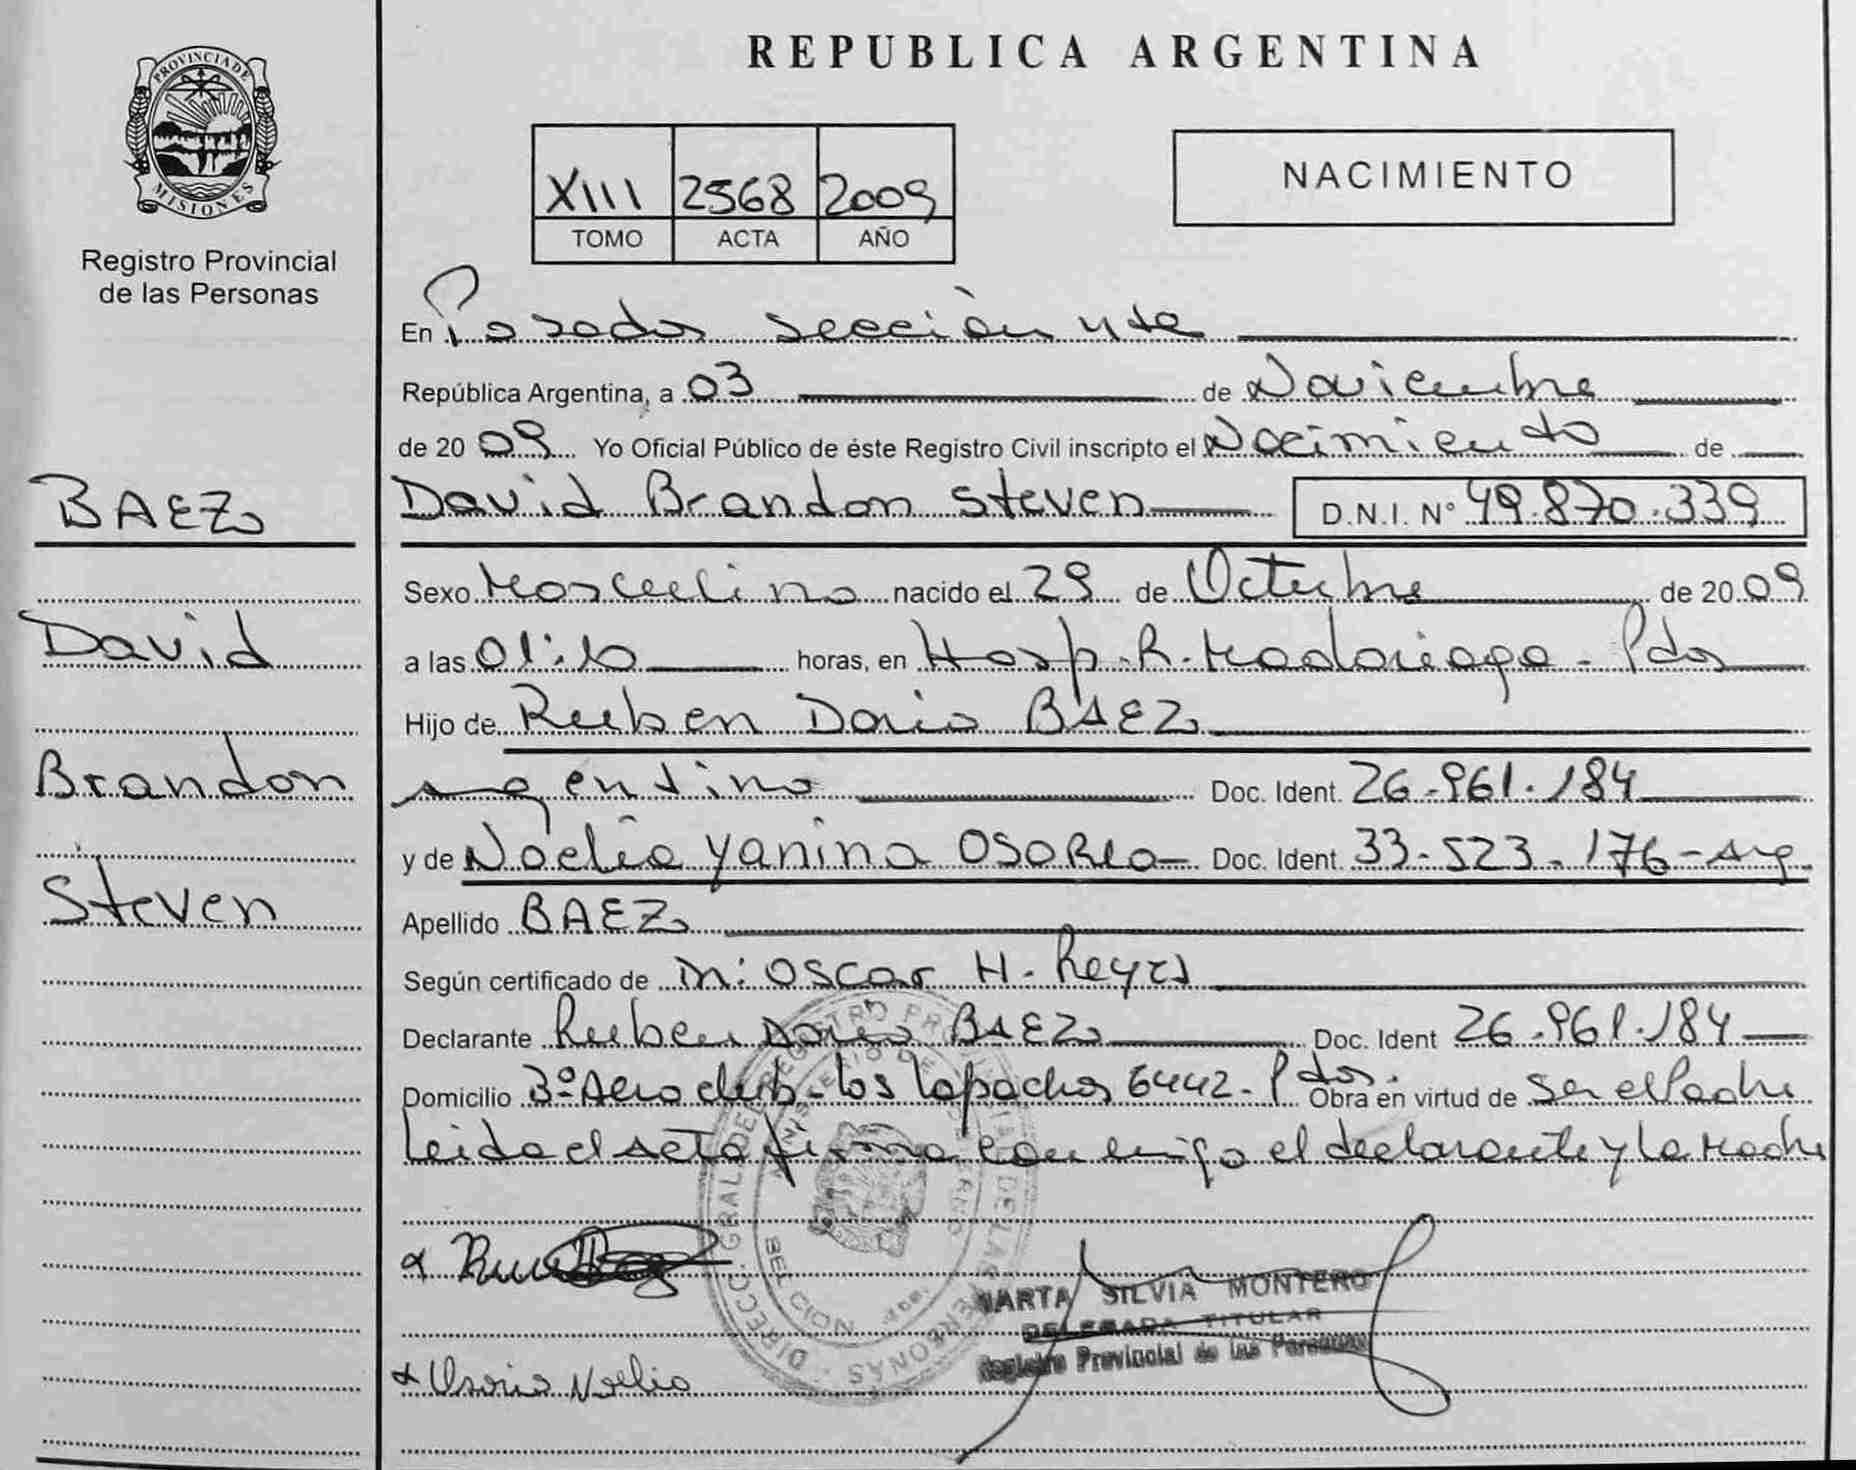 REPUBLICA ARGENTINA
PROVINCIA DE
MISIONES
Registro Provincial
de las Personas
XIII 2568 2009
TOMO ACTA AÑO
NACIMIENTO
En Posadas sección 4ta
República Argentina, a 03 de Noviembre
de 20 09 Yo Oficial Público de éste Registro Civil inscripto el Nacimiento de
BAEZ
David Brandon Steven D.N.I. N° 49.870.339
Sexo Masculino nacido el 29 de Octubre de 20 09
David
a las 01:10 horas, en Hosp. R. Madariaga - Pdas
Hijo de Ruben Dario BAEZ
Brandon
argentino Doc. Ident. 26.961.184
y de Noelia Yanina OSORIO Doc. Ident. 33.523.176 - arg.
Steven
Apellido BAEZ
Según certificado de m: Oscar H. Reyes
Declarante Ruben Dario BAEZ Doc. Ident 26.961.184
Domicilio Bº Aero club - los lapachos 6442 - Pdas. Obra en virtud de Ser el Padre
leida el acta firma con migo el declarante y la Madre
DIRECC. GRAL DEL REGISTRO PROVINCIAL DE LAS PERSONAS
MARTA SILVIA MONTERO
DELEGADA TITULAR
Registro Provincial de las Personas
Osorio Noelia